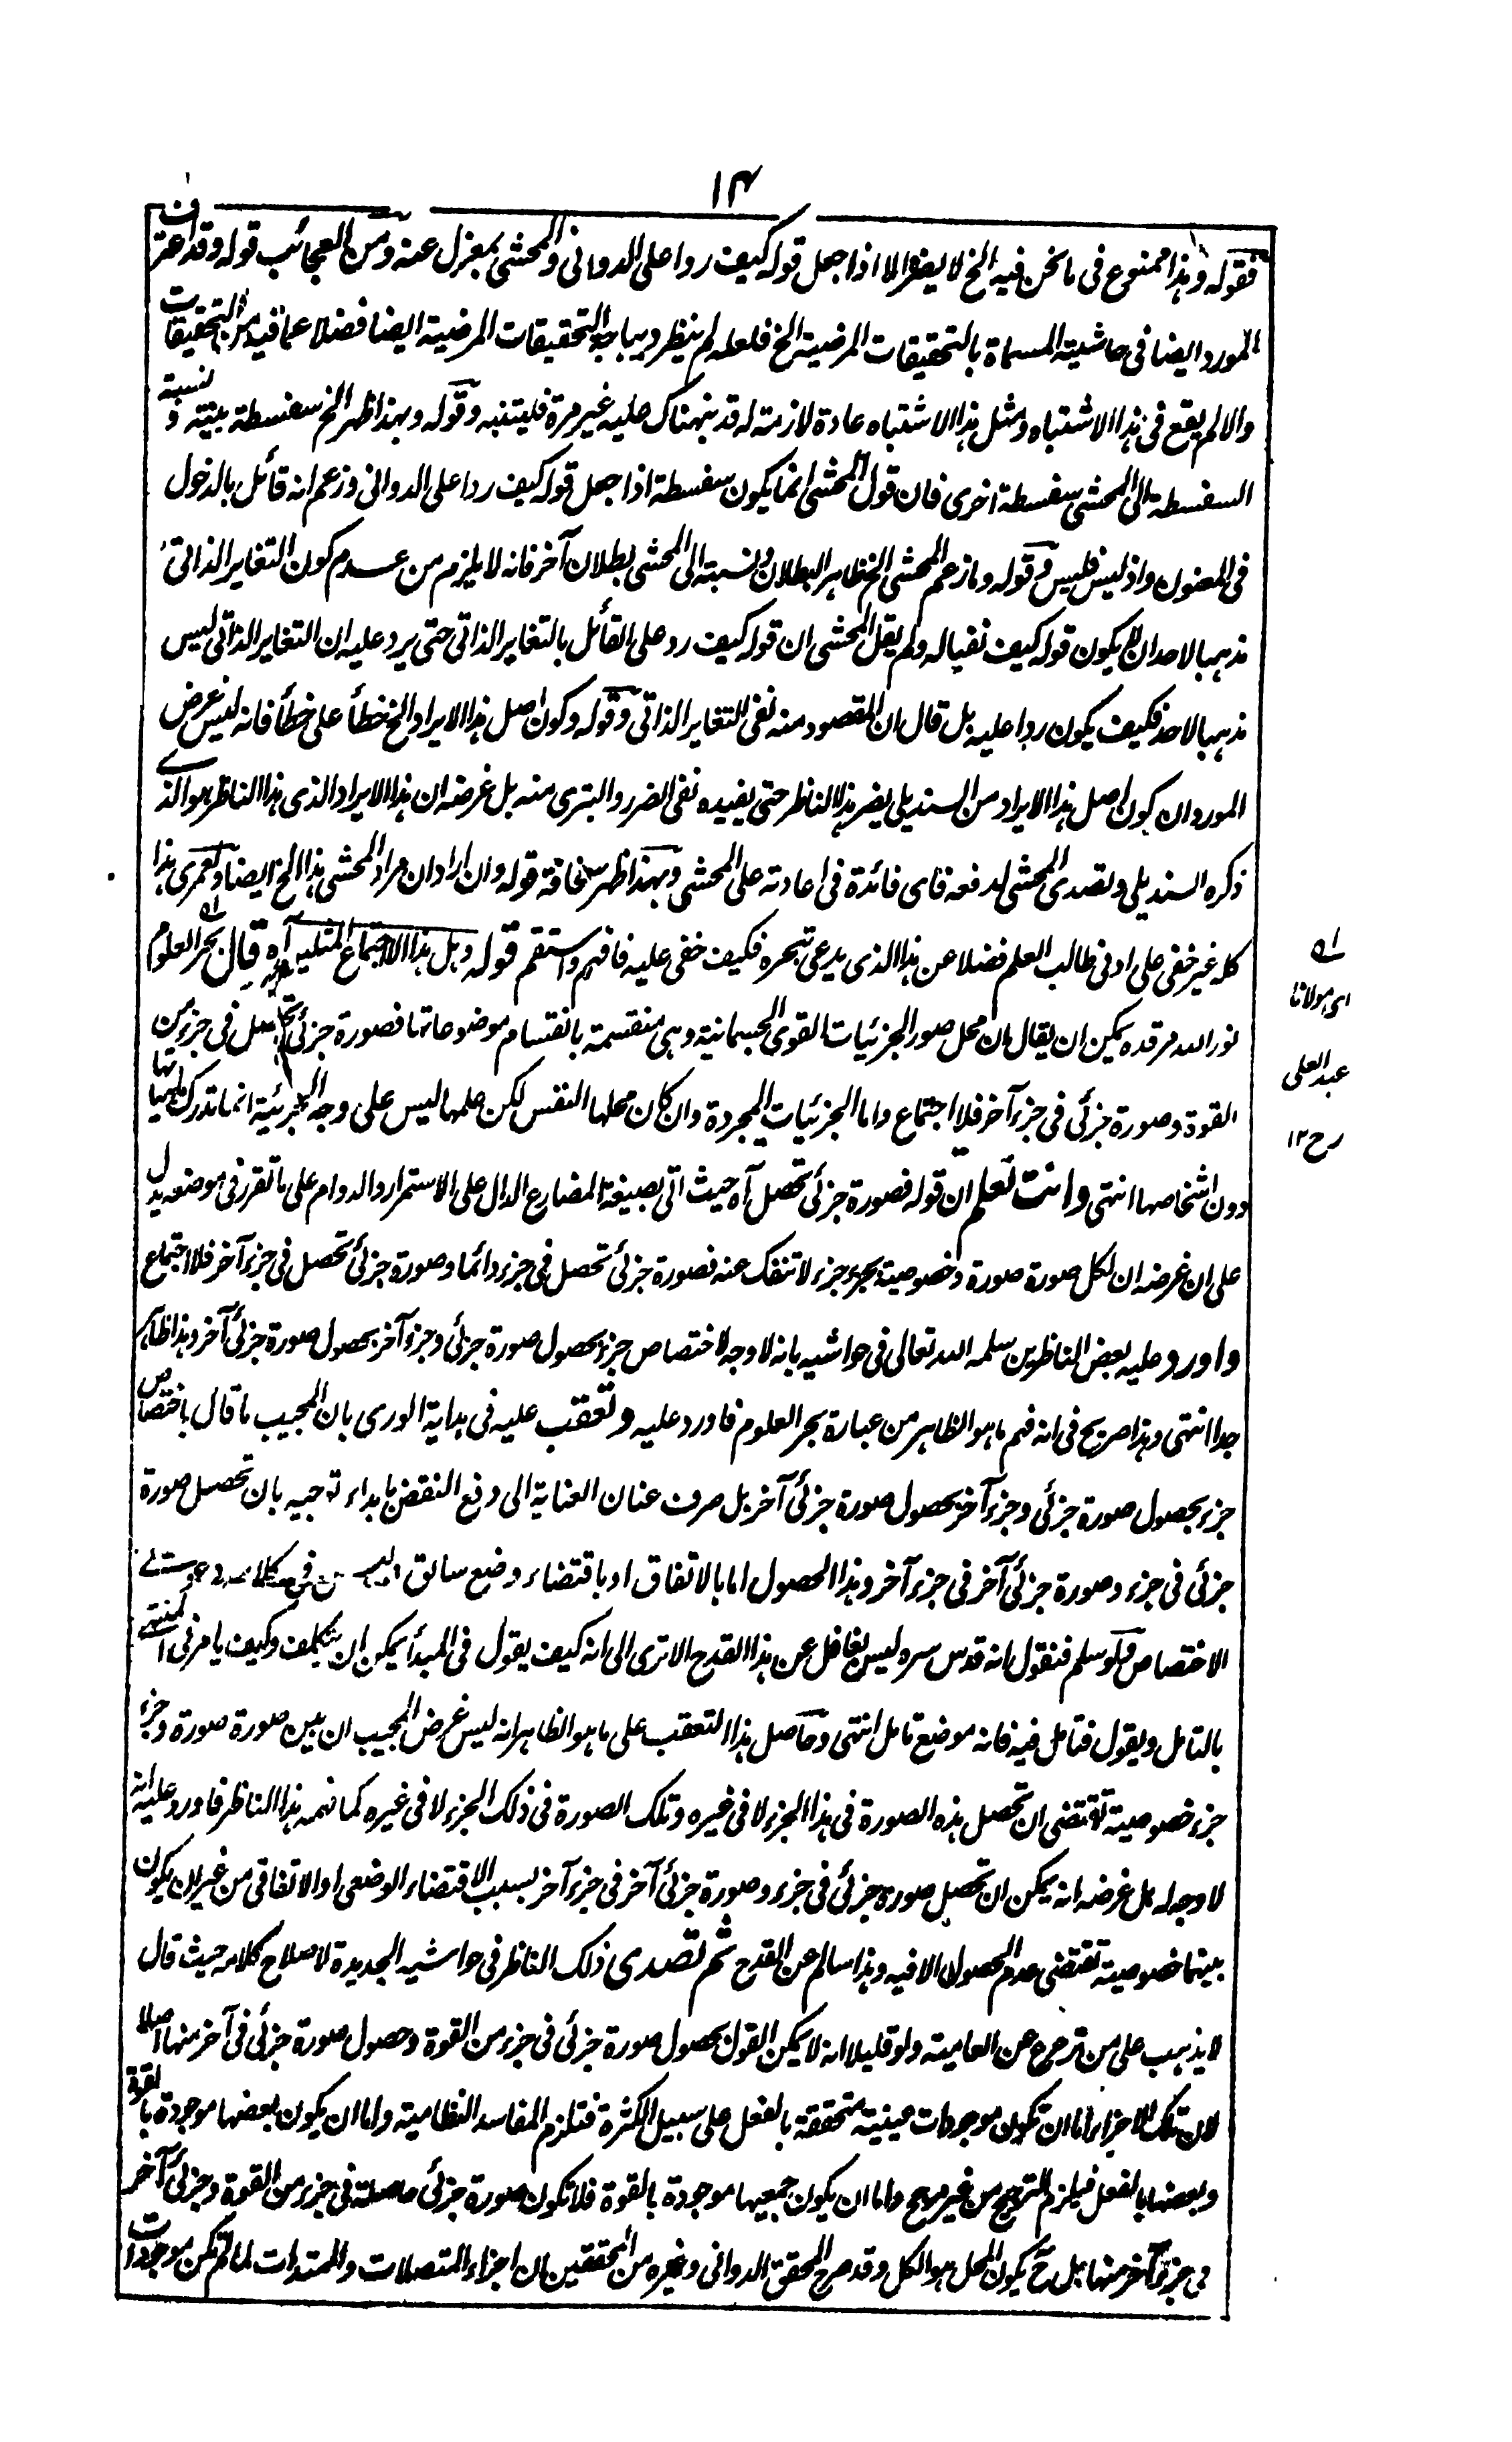 ١٤
فقوله وهذا ممنوع فى ما نحن فيه الخ لا يضر الا اذا جعل قوله كيف ردا على الدوانى والمحشى بمعزل عنه ومن العجائب قوله وقد اعترف
المورد ايضا فى حاشيته المسماة بالتحقيقات المرضية الخ فلعله لم ينظر ديباجة التحقيقات المرضية ايضا فضلا عما فيه من التحقيقات
والا لم يقع فى هذا الاشتباه ومثل هذا الاشتباه عادة لازمة له قد نبهناك عليه غير مرة فليتنبه وقوله وبهذا ظهر الخ سفسطة بينة ونسبة
السفسطة الى المحشى سفسطة اخرى فان قول المحشى انما يكون سفسطة اذا جعل قوله كيف ردا على الدوانى وزعم انه قائل بالدخول
فى المعنون واذ ليس فليس وقوله وما زعم المحشى الخ ظاهر البطلان ونسبته الى المحشى بطلان آخر فانه لا يلزم من عدم كون التغاير الذاتى
مذهبا لاحد ان لا يكون قوله كيف نفيا له ولم يقل المحشى ان قوله كيف رد على القائل بالتغاير الذاتى حتى يرد عليه ان التغاير الذاتى ليس
مذهبا لاحد فكيف يكون ردا عليه بل قال ان المقصود منه نفى التغاير الذاتى وقوله وكون اصل هذا الايراد الخ خطأ على خطأ فانه ليس غرض
المورد ان كون اصل هذا الايراد من السنديلى يضر هذا الناظر حتى يفيده نفى الضرر والتبرى منه بل غرضه ان هذا الايراد الذى هذا الناظر هو الذى
ذكره السنديلى وتصدى المحشى لدفعه فاى فائدة فى اعادته على المحشى وبهذا ظهر سخافة قوله وان اراد ان مراد المحشى هذا الخ ايضا ولعمرى هذا
كله غير خفى على ادنى طالب العلم فضلا عن هذا الذى يدعى تبحره فكيف خفى عليه فافهم واستقم قوله وهل هذا الا اجتماع المثلين آه قال بحر العلوم
نور الله مرقده يمكن ان يقال ان محل صور الجزئيات القوى الجسمانية وهى منقسمة بانقسام موضوعاتها فصورة جزئى تحصل فى جزء من
القوة وصورة جزئى فى جزء آخر فلا اجتماع واما الجزئيات المجردة وان كان محلها النفس لكن علمها ليس على وجه الجزئية انما تدرك ماهياتها
دون اشخاصها انتهى وانت تعلم ان قوله فصورة جزئى تحصل آه حيث اتى بصيغة المضارع الدال على الاستمرار والدوام على ما تقرر فى موضعه يدل
على ان غرضه ان لكل صورة صورة خصوصية بجزء جزء لا تنفك عنه فصورة جزئى تحصل فى جزء دائما وصورة جزئى تحصل فى جزء آخر فلا اجتماع
واورد عليه بعض الناظرين سلمه الله تعالى فى حواشيه بانه لا وجه لاختصاص جزء بحصول صورة جزئى وجزء آخر بحصول صورة جزئى آخر وهذا ظاهر
جدا انتهى وهذا صريح فى انه فهم ما هو الظاهر من عبارة بحر العلوم فاورد عليه وتعقب عليه فى هداية الورى بان المجيب ما قال باختصاص
جزء بحصول صورة جزئى وجزء آخر بحصول صورة جزئى آخر بل صرف عنان العناية الى دفع النقض بابداء توجيه بان تحصل صورة
جزئى فى جزء وصورة جزئى آخر فى جزء آخر وهذا الحصول اما بالاتفاق او باقتضاء وضع سابق وليس فى كلامه دعوى
الاختصاص ولو سلم فنقول انه قدس سره ليس بغافل عن هذا القدح الا ترى الى انه كيف يقول فى المبدأ يمكن ان يتكلف وكيف يامر فى المنتهى
بالتامل ويقول فتامل فيه فانه موضع تامل انتهى وحاصل هذا التعقب على ما هو الظاهر انه ليس غرض المجيب ان بين صورة صورة وجزء
جزء خصوصية تقتضى ان تحصل هذه الصورة فى هذا الجزء لا فى غيره وتلك الصورة فى ذلك الجزء لا فى غيره كما فهمه هذا الناظر فاورد عليه انه
لا وجه له بل غرضه انه يمكن ان تحصل صورة جزئى فى جزء وصورة جزئى آخر فى جزء آخر بسبب الاقتضاء الوضعى او الاتفاقى من غير ان يكون
بينهما خصوصية تقتضى عدم الحصول الا فيه وهذا سالم عن القدح ثم تصدى ذلك الناظر فى حواشيه الجديدة لاصلاح كلامه حيث قال
لا يذهب على من ترعرع عن العامية ولو قليلا انه لا يمكن القول بحصول صورة جزئى فى جزء من القوة وحصول صورة جزئى فى آخر منها اصلا
لان تلك الاجزاء اما ان تكون موجودات عينية متحققة بالفعل على سبيل الكثرة فتلزم المفاسد النظامية واما ان يكون بعضها موجودة بالقوة
وبعضها بالفعل فيلزم الترجيح من غير مرجح واما ان يكون جميعها موجودة بالقوة فلا تكون صورة جزئى حاصلة فى جزء من القوة وجزئى آخر
فى جزء آخر منها بل ح يكون المحل هو الكل وقد صرح المحقق الدوانى وغيره من المحققين ان اجزاء المتصلات والممتدات لما لم تكن موجودات
له
اى مولانا
عبد العلى
رح ١٢